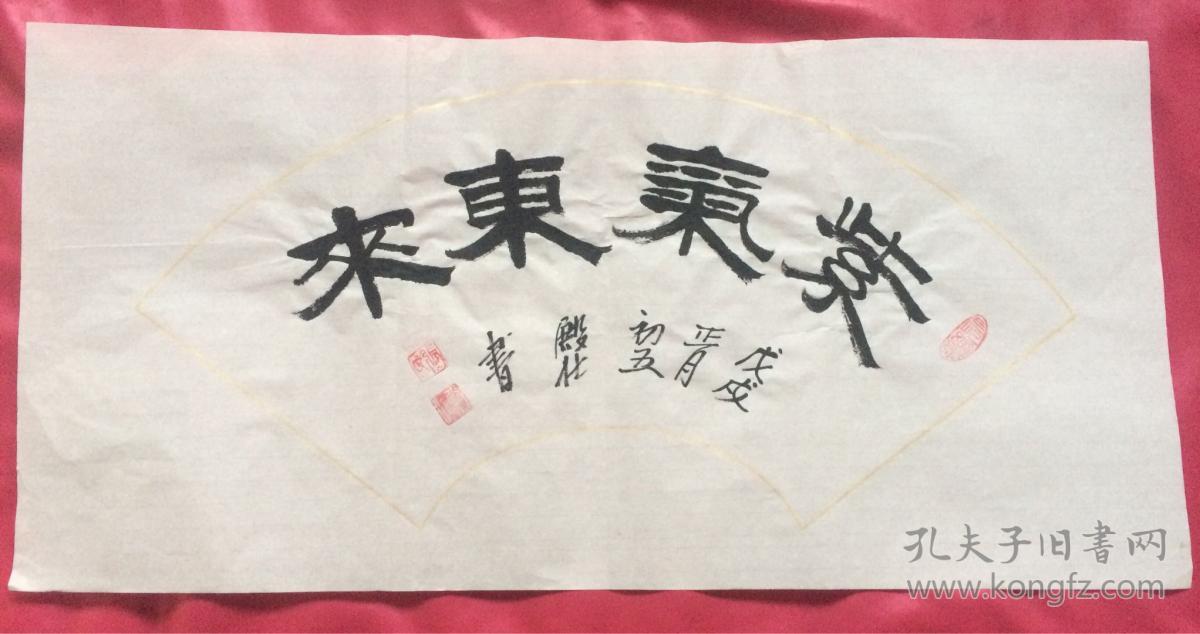 紫氣東來
戊戌
正月
初五
殿仕
書
孔夫子旧書网
www.kongfz.com